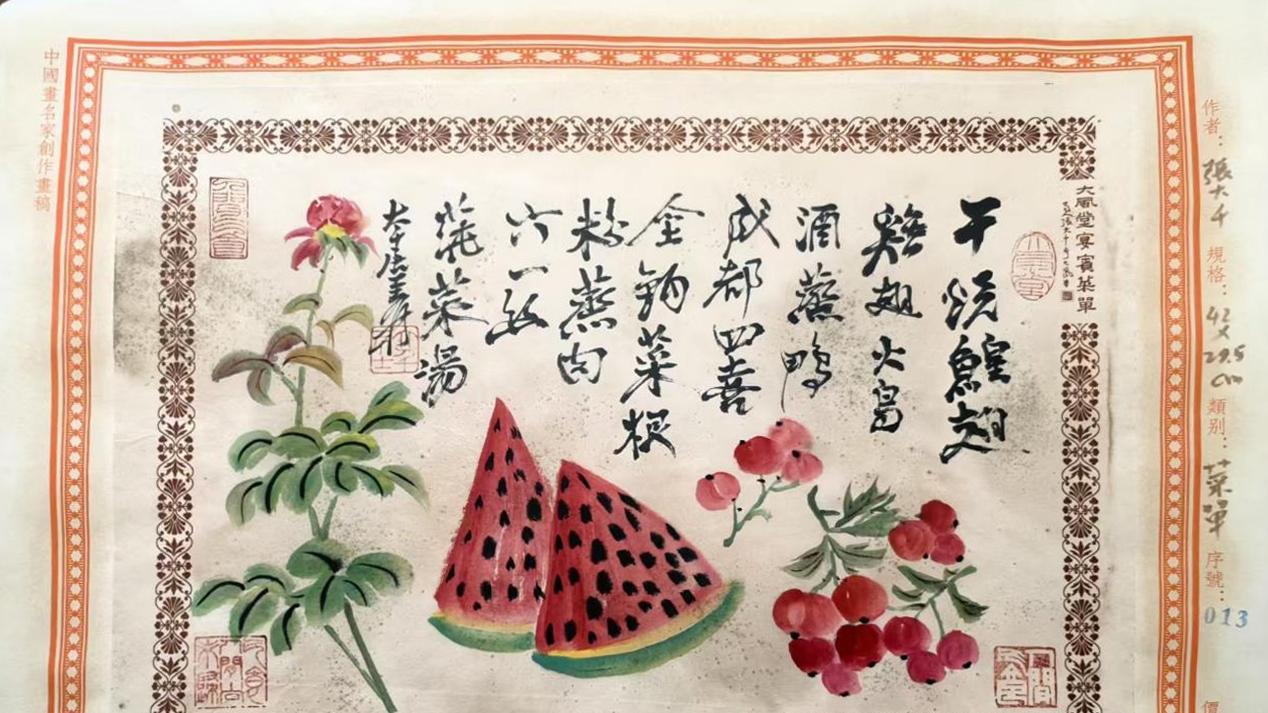 作者：張大千 規格：42×29.5cm 類别：菜單 序號：013 價
大風堂宴賓菜單
干燒鰉翅
雞翅火烏
酒蒸鴨
成都四喜
金鉤菜根
粉蒸肉
六一絲
蒓菜湯
中國畫名家創作畫稿